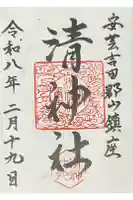 安芸吉田郡山鎮座
清神社
令和八年二月十九日